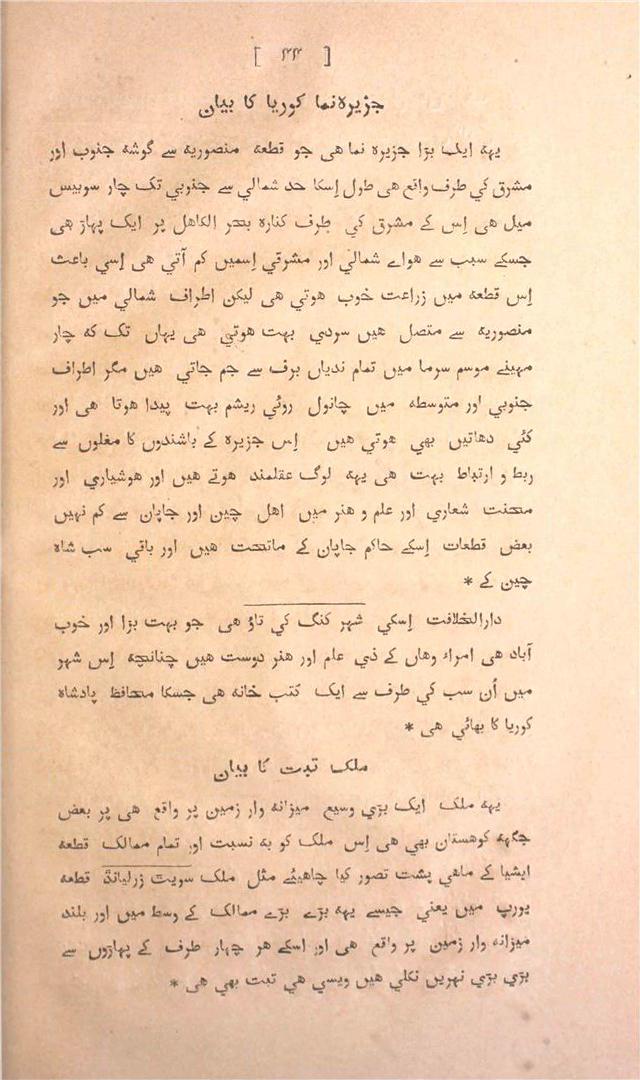 [ ۲۴۴ ]
جزیرہ نما کوریا کا بیان
یہہ ایک بڑا جزیرہ نما هی جو قطعه منصوریه سے گوشه جنوب اور
مشرق کي طرف واقع هی طول اِسکا حد شمالي سے جنوبي تک چار سوبیس
میل هی اِس کے مشرق کي طرف کناره بحر الکاهل پر ایک پهاڑ هی
جسکے سبب سے هواے شمالي اور مشرقي اِسمیں کم آتی هی اِسي باعث
اِس قطعه میں زراعت خوب هوتي هی لیکن اطراف شمالي میں جو
منصوریه سے متصل هیں سردي بهت هوتي هی یہاں تک که چار
مهینے موسم سرما میں تمام ندیاں برف سے جم جاتي هیں مگر اطراف
جنوبي اور متوسطه میں چانول روئي ریشم بهت پیدا هوتا هی اور
کئي دهاتیں بهي هوتي هیں اِس جزیره کے باشندوں کا مغلوں سے
ربط و ارتباط بهت هی یہه لوگ عقلمند هوتے هیں اور هوشیاري اور
محنت شعاري اور علم و هنر میں اهل چین اور جاپان سے کم نهیں
بعض قطعات اِسکے حاکم جاپان کے ماتحت هیں اور باقي سب شاه
چین کے *
دارالخلافت اِسکي شہر کنگ کي تاؤ هی جو بهت بڑا اور خوب
آباد هی امراء وهاں کے ذي علم اور هنر دوست هیں چنانچه اِس شہر
میں اُن سب کي طرف سے ایک کتب خانه هی جسکا محافظ پادشاه
کوریا کا بهائي هی *
ملک تبت کا بیان
یہه ملک ایک بڑي وسیع میزانه وار زمین پر واقع هی پر بعض
جگہه کوهستان بهي هی اِس ملک کو به نسبت اور تمام ممالک قطعه
ایشیا کے ماهي پشت تصور کیا چاهیئے مثل ملک سویت زرلیانڈ قطعه
یورپ میں یعني جیسے یہه بڑے بڑے ممالک کے وسط میں اور بلند
میزانه وار زمین پر واقع هی اور اسکے هر چہار طرف کے پہاڑوں سے
بڑي بڑي نہریں نکلي هیں ویسي هي تبت بهي هی *